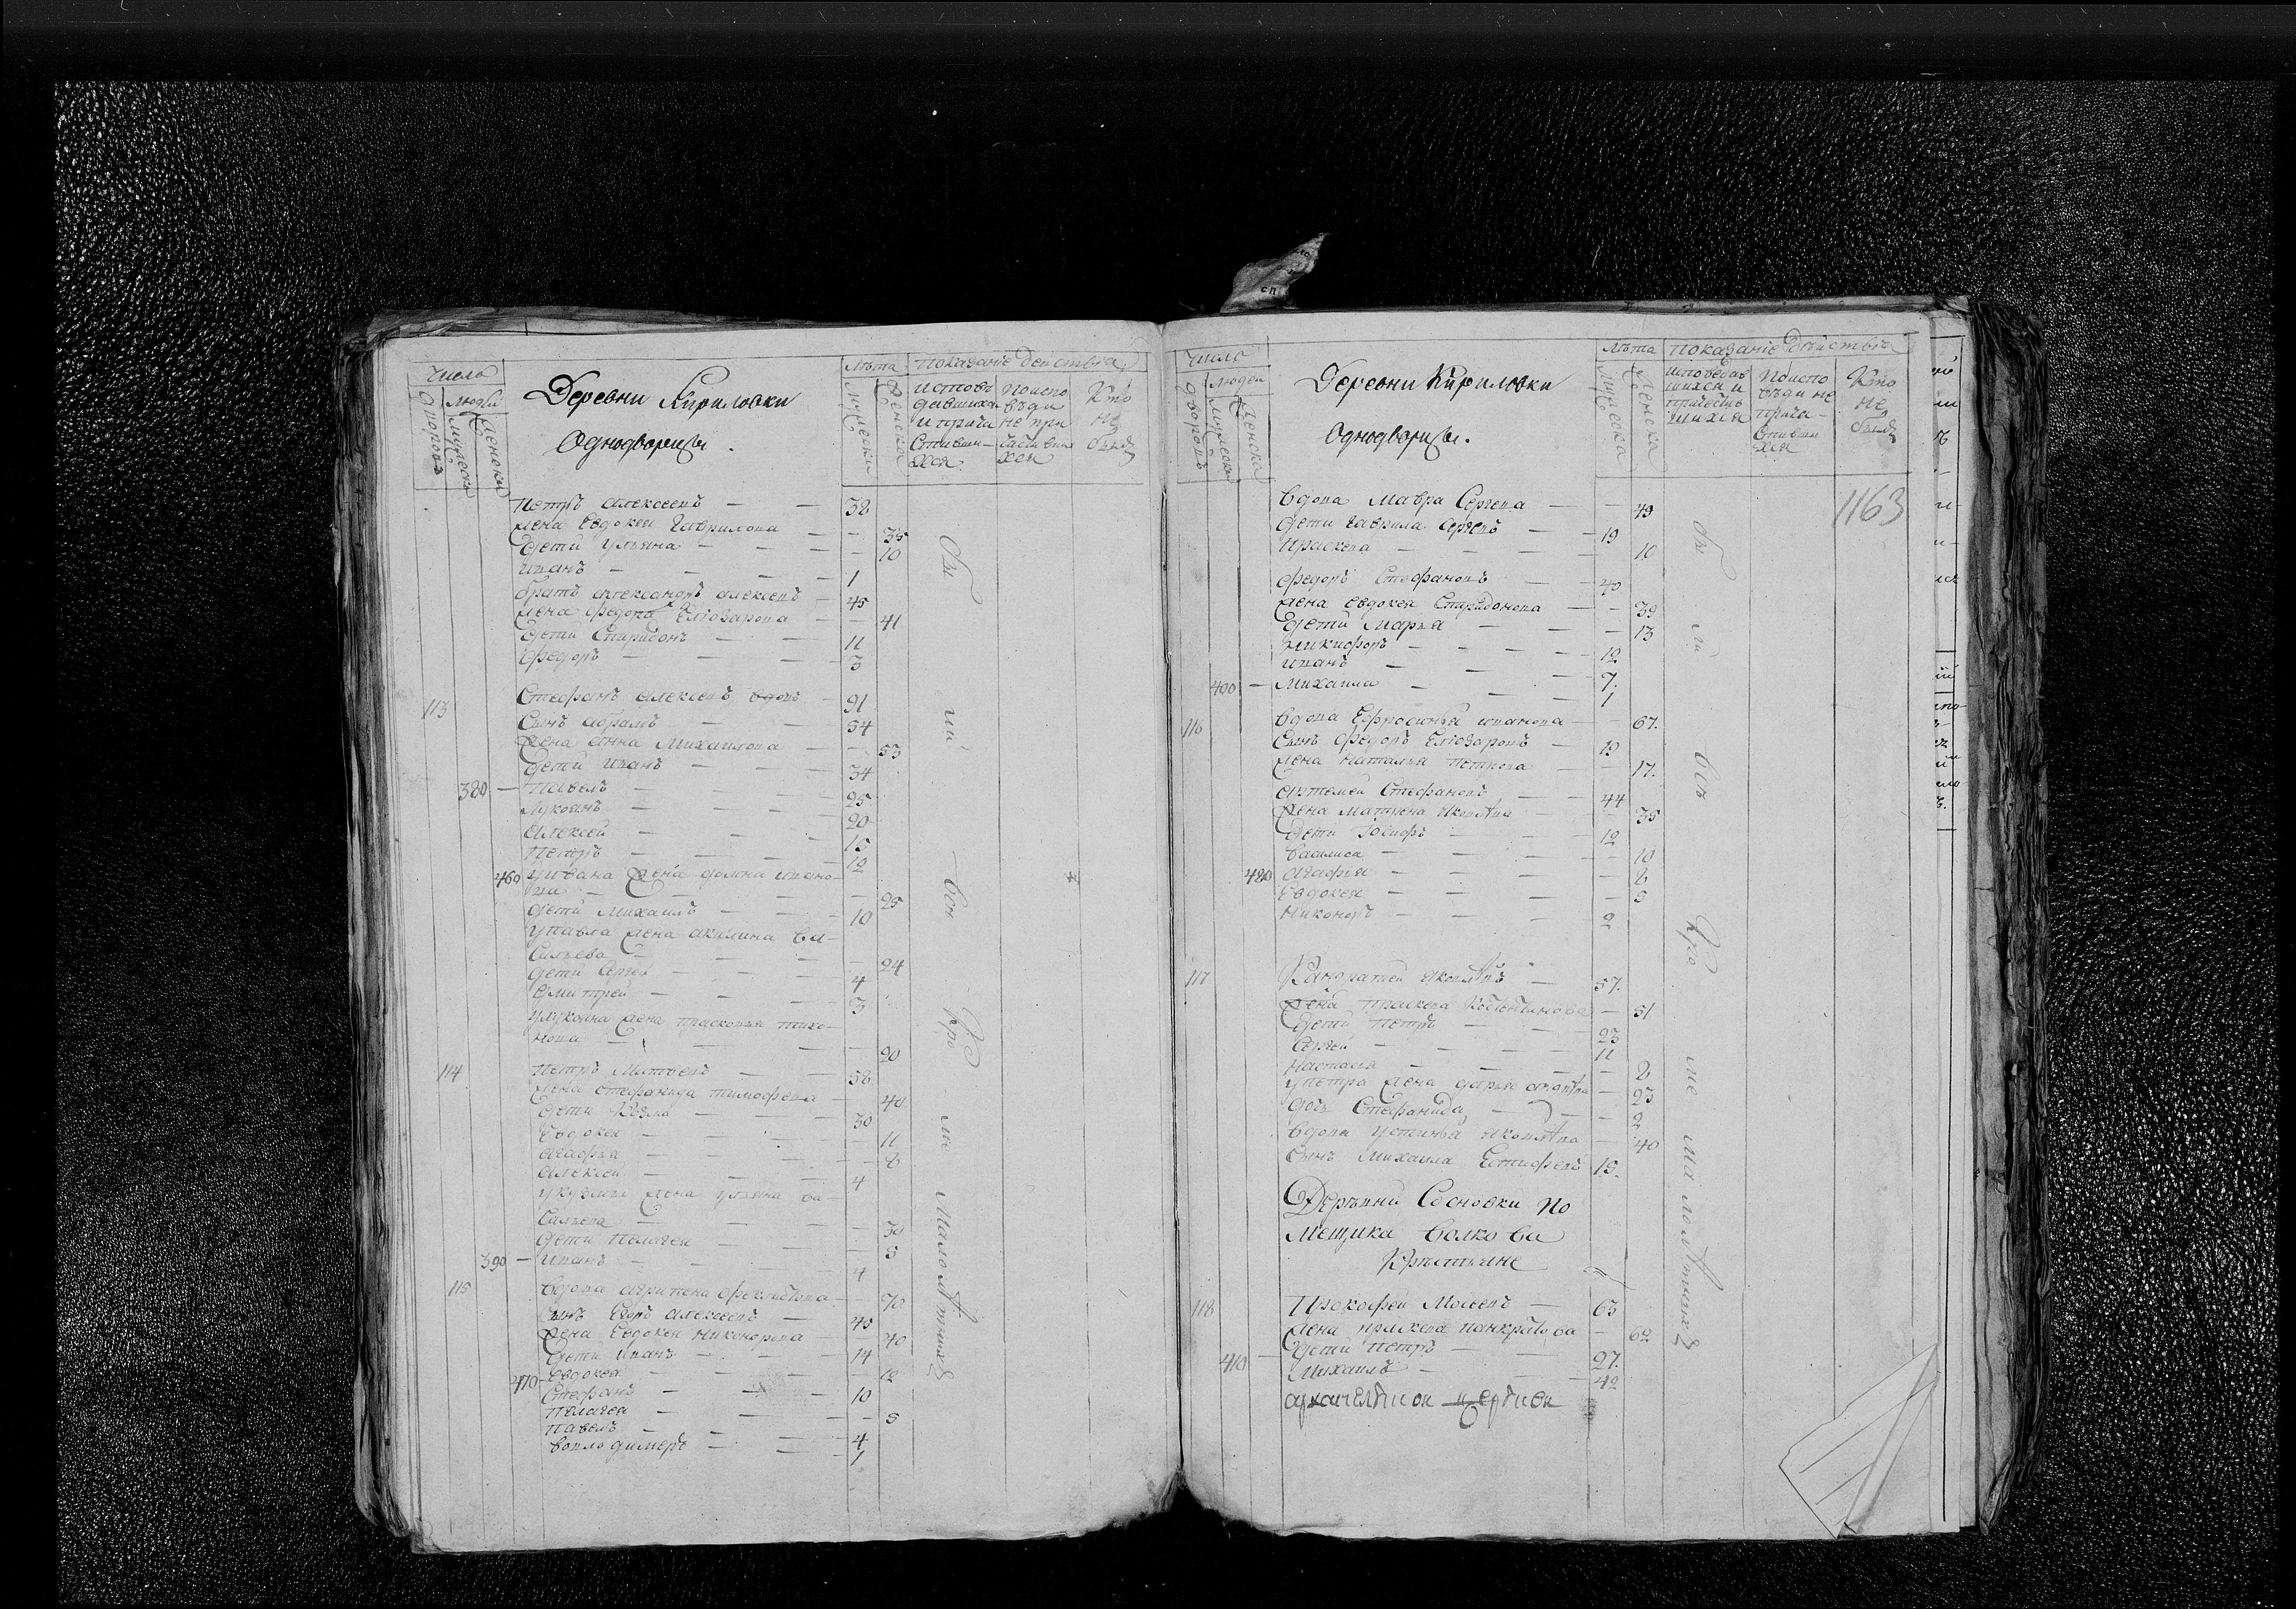 Числа
Дворовъ
Людей
Мужеска
Женска
Деревни Кириловки
Однодворцы.
Лѣта
Мужеска
Женска
Показанiе действiа
Исповѣ
давшиха
и прича
стивши-
хся.
По испо
вѣди
не при
частивши
хся
Кто
не
былъ
Петръ Алексеевъ — — 38
жена Евдокея Гаврилова — — 35
дети Ульяна — — — 10
Иванъ — — — 1
братъ Александръ Алексеевъ — 45
жена Федося Елiозарова — — 41
дети Спиридонъ — — 11
Федоръ — — — 3
113 Стефанъ Алексеевъ вдовъ — 91
сынъ Абрамъ — — 54
жена Анна Михаилова — — 53
дети Иванъ — — — 34
380 — Павелъ — — 25
Лукоянъ — — — 20
Алексей — — — 15
Петръ — — — 12
460 у Ивана жена Домна Ивано-
ва — — — 25
дети Михаилъ — — 10
у Павла жена Акилина Ва-
сильева — — — 24
дети Сергей — — — 4
Дмитрей — — — 3
у Лукояна жена Прасковья Тихо-
нова — — — 20
114 Петръ Матвеевъ — — 58
жена Стефанида Тимофеева — 40
дети Козма — — 30
Евдокея — — — 11
Агафья — — — 8
Алексей — — — 4
у Кузмы жена Ульяна Ва-
сильева — — — 30
дети Пелагея — — — 5
390 — Иванъ — — — 4
115 вдова Агрипена — 70
сынъ Егоръ Алексеевъ — 45
жена Евдокея Никонорова — 40
дети Иванъ — — 14
470 — Евдокея — — — 12
Стефанъ — — — 10
Пелагея — — — 5
Павелъ — — — 4
Володимеръ — — — 1
бы
ли
вси
кро
ме
малолѣтныхъ
Числа
Дворовъ
Людей
Мужеска
Женска
Деревни Кириловки
Однодворцы.
Лѣта
Мужеска
Женска
Показанiе дѣйствiа
исповедав
шихси и
причастив
шихся
По испо
вѣди не
прича-
стивши
хся
Кто
не
былъ
1163
вдова Мавра Сергева — — 49
дети Гаврила Сергевъ — 19
Праскева — — — 10
Федоръ Стефановъ — — 40
жена Евдокея Спиридонова — — 39
дети Марья — — — 13
Никифоръ — — — 12
Иванъ — — — 7.
400 — Михаила — — — 1
116 вдова Ефросинья Иванова — — 67.
сынъ Федоръ Елiозаровъ — 19
жена Наталья Петрова — — 17.
Артемей Стефановъ — 44
жена Матрена Яковлѣва — — 35
дети Iосифъ — — 12
Василиса — — — 10
480 Агафья — — — 8
Евдокея — — — 5
Никоноръ — — — 2
117 Кандратей Яковлѣвъ — 57.
жена Праскева — 51
дети Петръ — — 23
Сергей — — — 11
Настасья — — — 8
у Петра жена Дарья Андрѣва — 23
дочь Стефанида — — 2
вдова Устинья Яковлѣва — 40
сынъ Михаила Естифевъ 15.
Деревни Сосновки по
мещика Волкова
Крестьяне
118 Прокофей Мосеевъ — 63
жена Праскева Панкратова — 62
дети Петръ — — 27.
410 — Михаилъ — — 42
бы
ли
вси
кро
ме
малолѣтныхъ